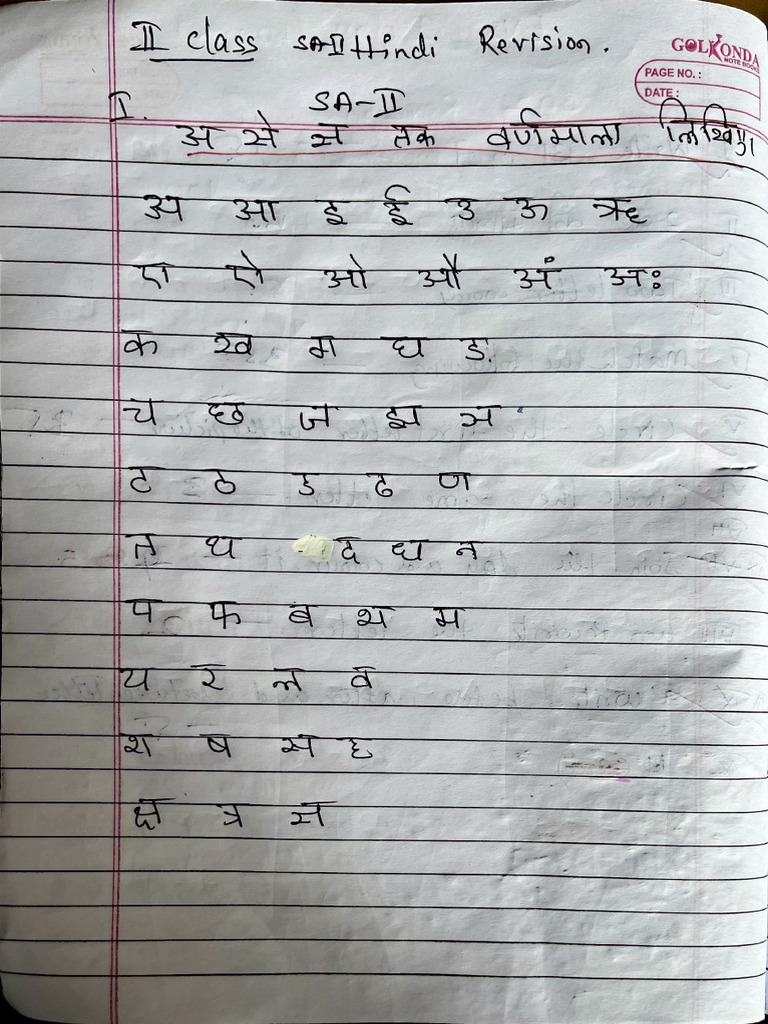 II class SA II Hindi Revision.
GOLKONDA
NOTE BOOKS
PAGE NO.:
DATE:
I. SA-II
अ से ज्ञ तक वर्णमाला लिखिए।
अ आ इ ई उ ऊ ऋ
ए ऐ ओ औ अं अः
क ख ग घ ङ
च छ ज झ ञ
ट ठ ड ढ ण
त थ द ध न
प फ ब भ म
य र ल व
श ष स ह
क्ष त्र ज्ञ